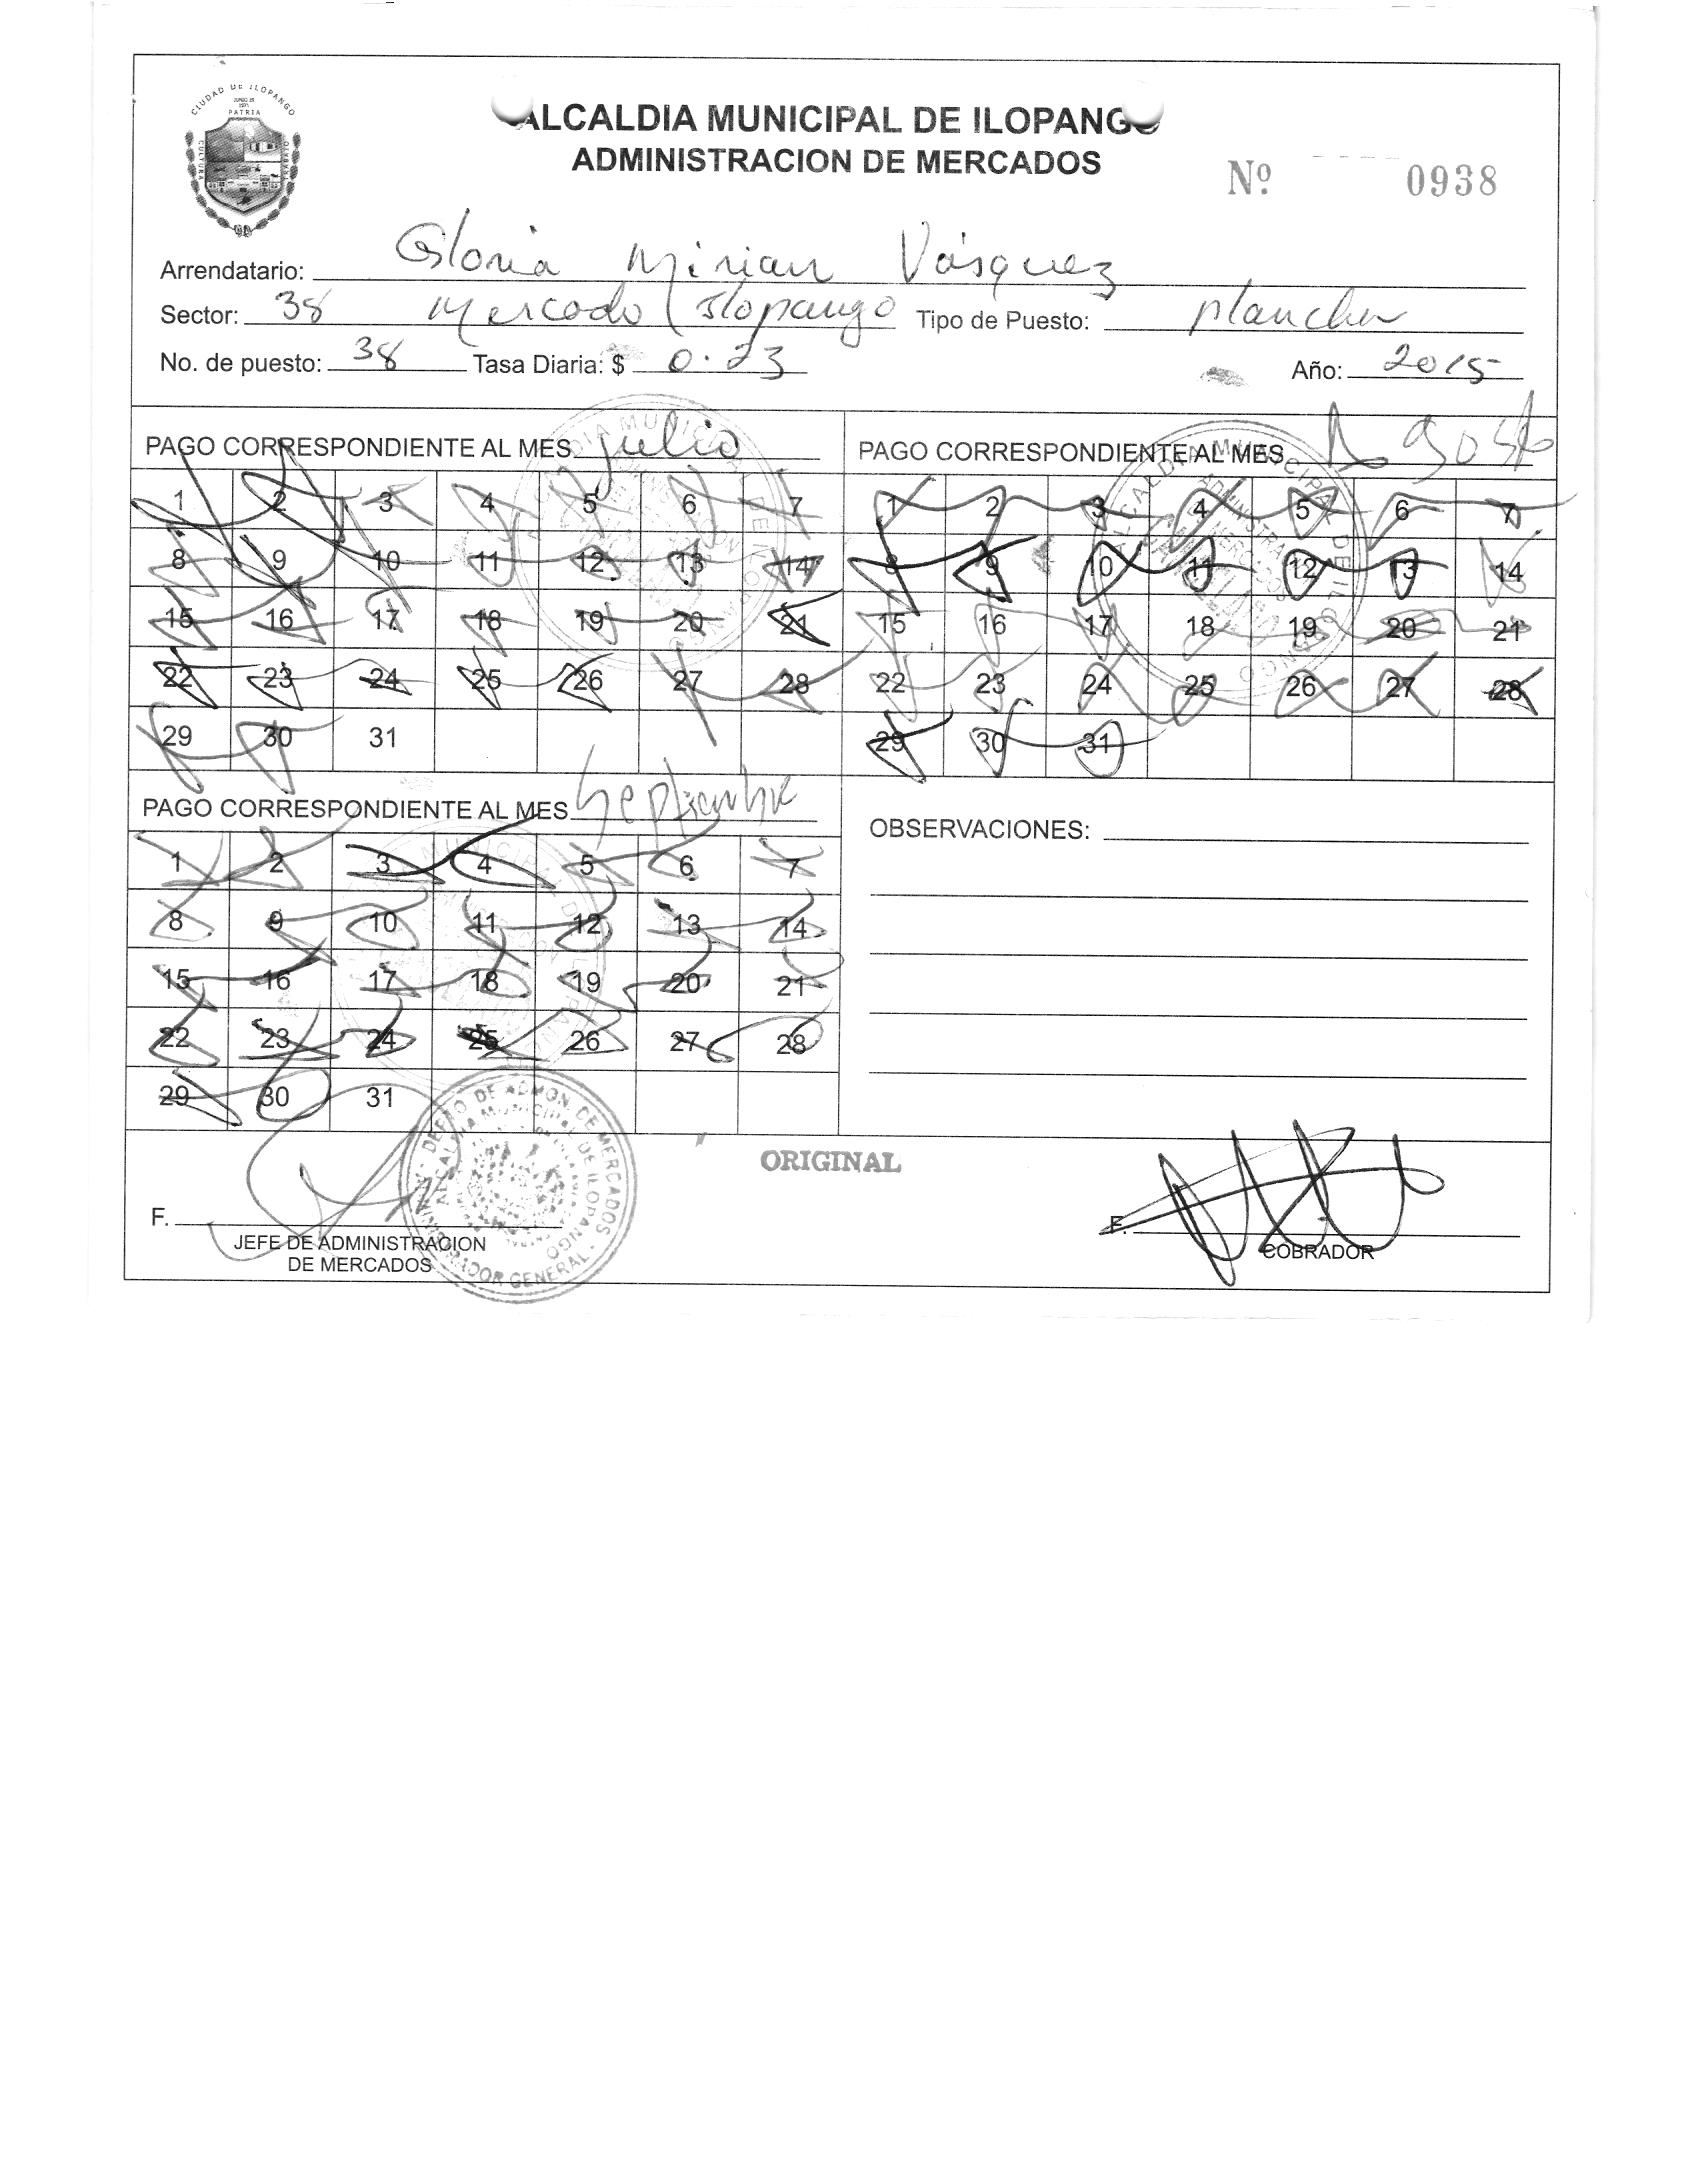 CIUDAD DE ILOPANGO
PATRIA
CULTURA
ALCALDIA MUNICIPAL DE ILOPANGO
ADMINISTRACION DE MERCADOS
Nº 0938
Arrendatario: Gloria Mirian Vásquez
Sector: 38 Mercado Ilopango Tipo de Puesto: plancha
No. de puesto: 38 Tasa Diaria: $ 0.23 Año: 2015
PAGO CORRESPONDIENTE AL MES julio
1 2 3 4 5 6 7
8 9 10 11 12 13 14
15 16 17 18 19 20 21
22 23 24 25 26 27 28
29 30 31
PAGO CORRESPONDIENTE AL MES Agosto
1 2 3 4 5 6 7
8 9 10 11 12 13 14
15 16 17 18 19 20 21
22 23 24 25 26 27 28
29 30 31
PAGO CORRESPONDIENTE AL MES Septiembre
1 2 3 4 5 6 7
8 9 10 11 12 13 14
15 16 17 18 19 20 21
22 23 24 25 26 27 28
29 30 31
OBSERVACIONES:
ORIGINAL
F.
JEFE DE ADMINISTRACION
DE MERCADOS
DEPTO DE ADMON. DE MERCADOS
ALCALDIA MUNICIPAL DE ILOPANGO
ADMINISTRADOR GENERAL
F.
COBRADOR